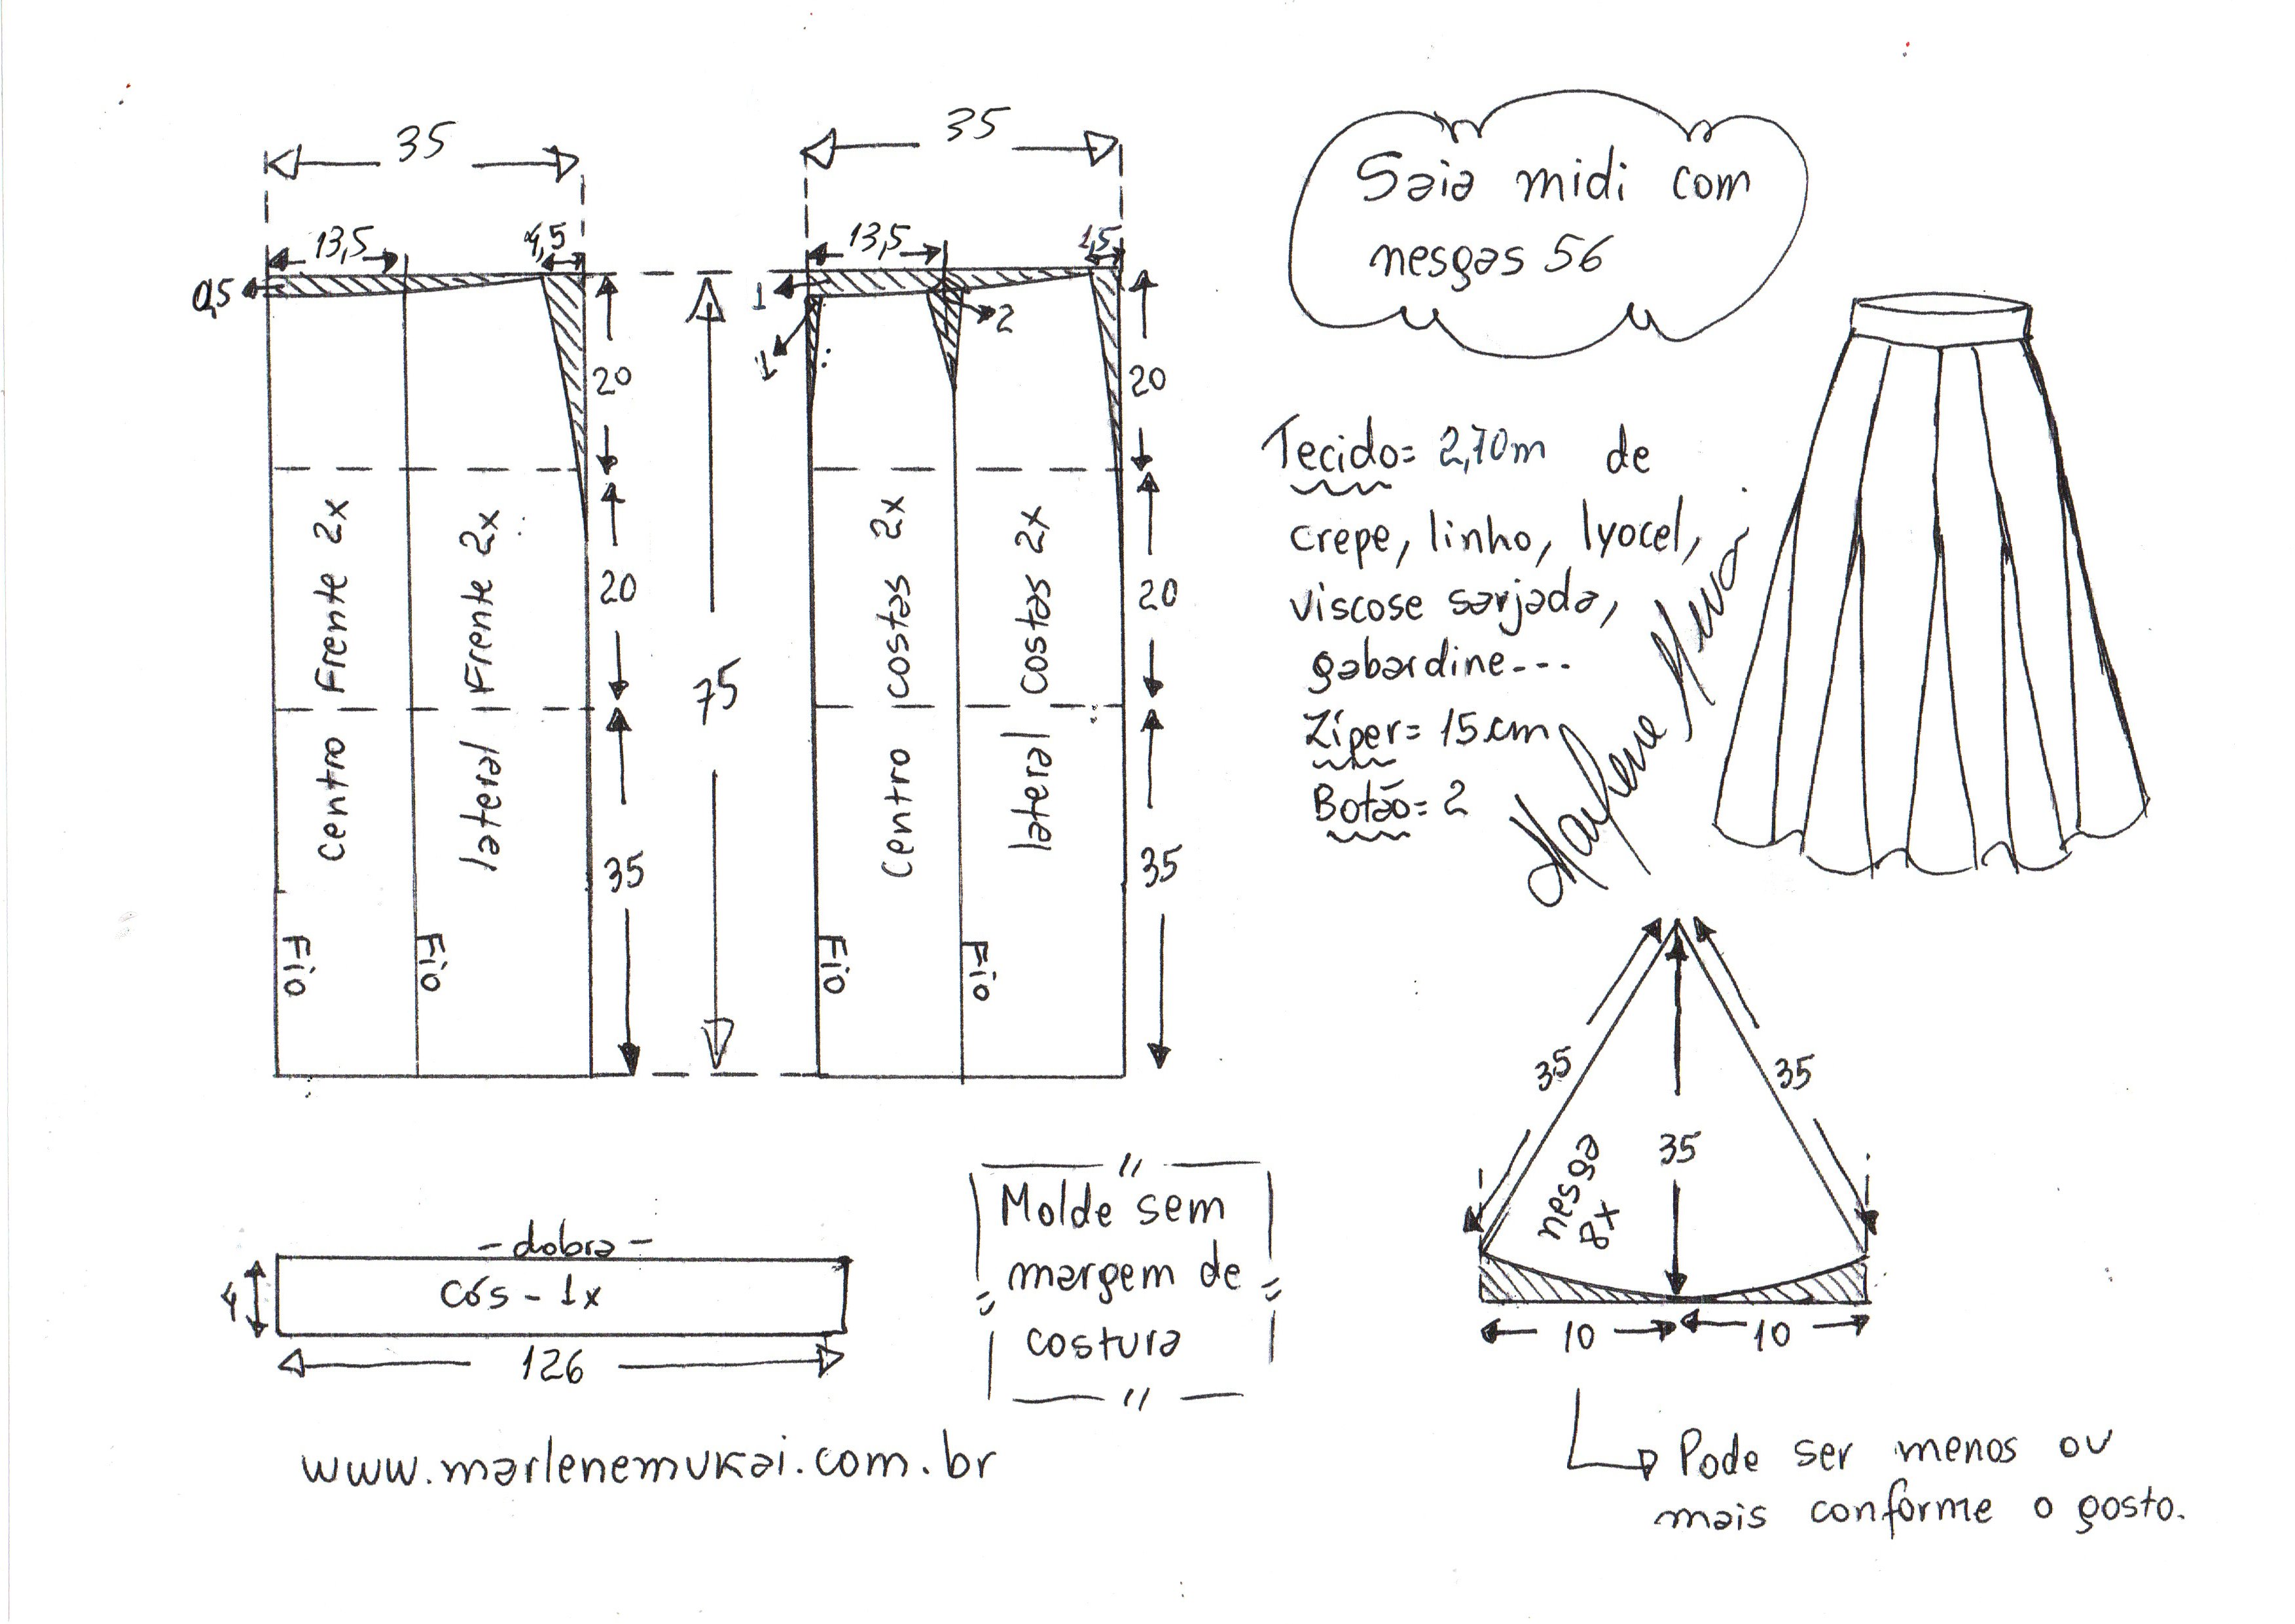 35
35
13,5
4,5
13,5
1,5
0,5
1
2
1
20
20
Centro Frente 2x
lateral Frente 2x
20
75
Centro costas 2x
lateral costas 2x
20
35
35
Fio
Fio
Fio
Fio
Saia midi com
nesgas 56
Tecido= 2,70m de
crepe, linho, lyocel,
viscose sarjada,
gabardine---
Zíper= 15cm
Botão= 2
35
35
35
nesga
8x
10
10
Pode ser menos ou
mais conforme o gosto.
-dobra-
4
Cós - 1x
126
Molde sem
margem de
costura
www.marlenemukai.com.br